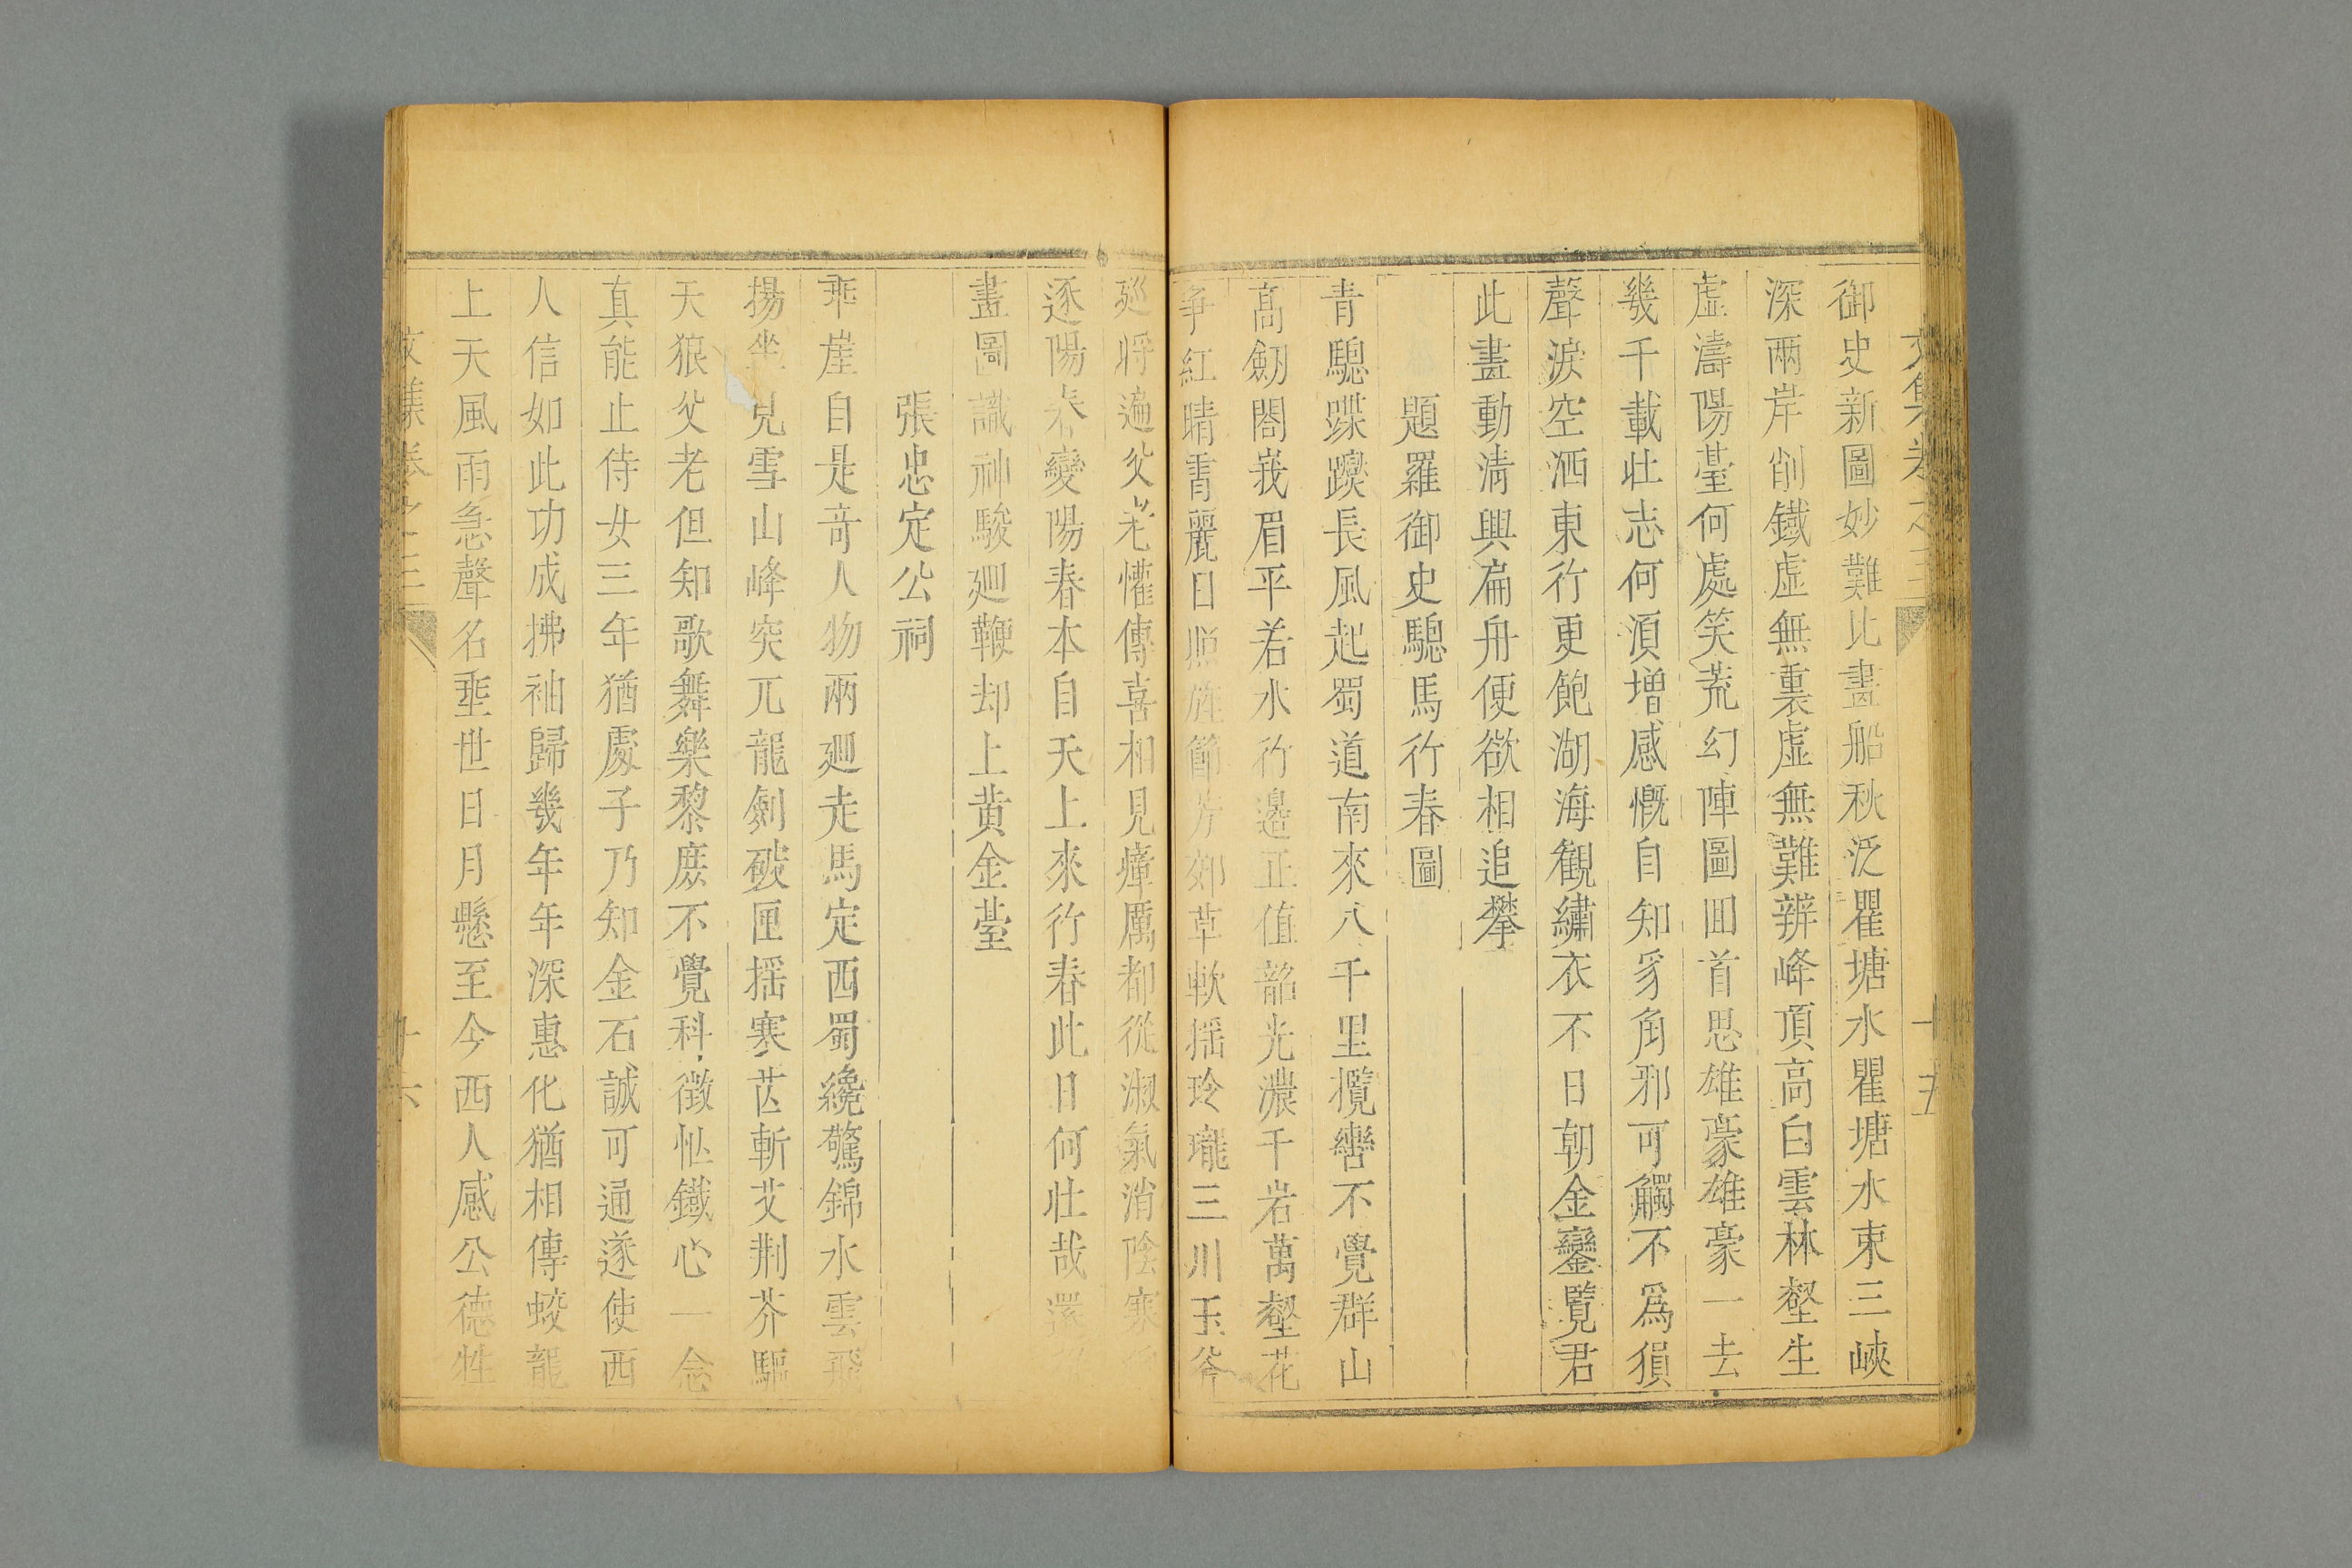 文集卷之三 十五
御史新圖妙難比畫船秋泛瞿塘水瞿塘水束三峽
深兩岸削鐵虛無裏虛無難辨峰頂高白雲林壑生
虛濤陽臺何處笑荒幻陣圖回首思雄豪雄豪一去
幾千載壯志何湏增感慨自知豸角邪可觸不爲狽
聲淚空洒東行更飽湖海觀繡衣不日朝金鑾覽君
此畫動清興扁舟便欲相追攀
題羅御史驄馬行春圖
青驄蹀躞長風起蜀道南來八千里攬轡不覺群山
高劒閣峩眉平若水行邊正值韶光濃千岩萬壑花
爭紅晴霄麗日照旌節芳郊草軟揺玲瓏三川玉斧
廵將遍父老懽傳喜相見瘴厲都從淑氣消陰寒
逐陽春變陽春本自天上來行春此日何壯哉還
畫圖識神駿廻鞭却上黄金䑓
張忠定公祠
乖崖自是竒人物兩廻走馬定西蜀纔驚錦水雲飛
揚坐見雪山峰突兀龍劍破匣揺寒芒斬艾荆芥驅
天狼父老但知歌舞樂黎庶不覺科徵怱鐵心一念
真能止侍女三年猶處子乃知金石誠可通遂使西
人信如此功成拂袖歸幾年年深惠化猶相傳蛟龍
上天風雨急聲名垂世日月懸至今西人感公德牲
文集卷之三 十六